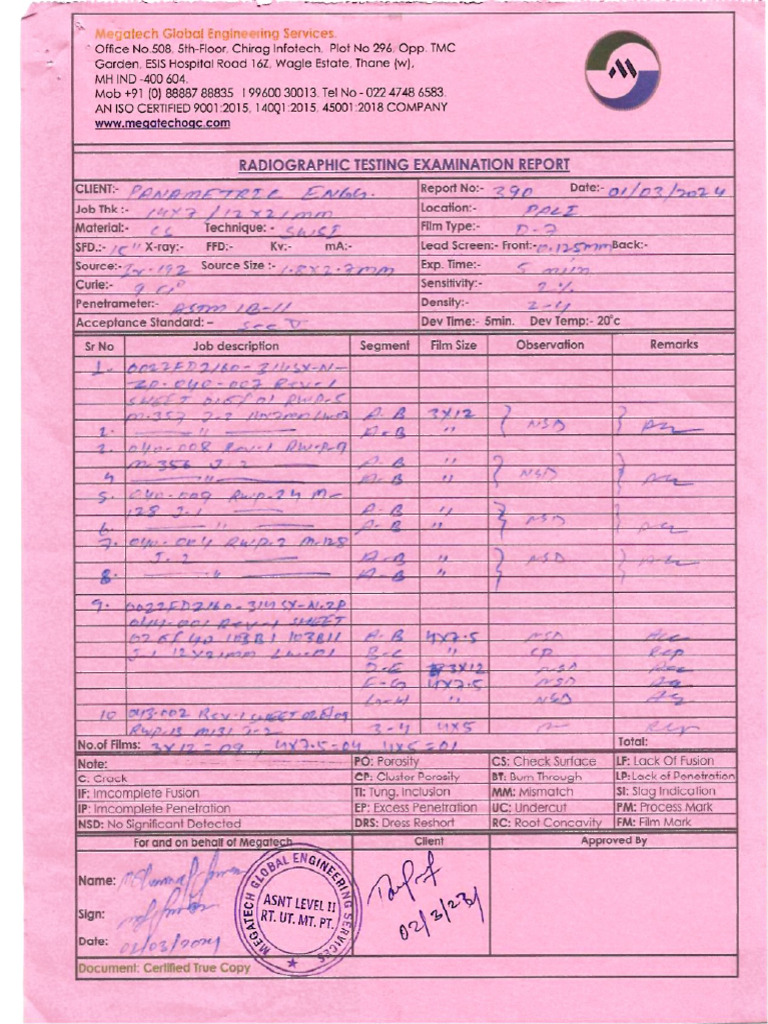 Megatech Global Engineering Services.
Office No.508, 5th-Floor, Chirag Infotech, Plot No 296, Opp. TMC
Garden, ESIS Hospital Road 16Z, Wagle Estate, Thane (w),
MH IND -400 604.
Mob +91 (0) 88887 88835 I 99600 30013. Tel No - 022 4748 6583.
AN ISO CERTIFIED 9001:2015, 14001:2015, 45001:2018 COMPANY
www.megatechogc.com
RADIOGRAPHIC TESTING EXAMINATION REPORT
CLIENT:- PANAMETRIC ENGG. Report No:- 390 Date:- 01/03/2024
Job Thk :- 14X7 / 12X21mm Location:- PALI
Material:- CS Technique: - SWSI Film Type:- D-7
SFD.:- 15" X-ray:- FFD:- Kv:- mA:- Lead Screen:- Front:- 0.125mm Back:-
Source:- Ir-192 Source Size :- 1.8X2.7mm Exp. Time:- 5 min
Curie:- 9 Ci Sensitivity:- 2%
Penetrameter:- ASTM 1B-11 Density:- 2-4
Acceptance Standard: – Sec V Dev Time:- 5min. Dev Temp:- 20°c
Sr No Job description Segment Film Size Observation Remarks
1. 0022FD2160-314SX-N-
2P-040-007 Rev-1
SHEET 01 OF 01 RWP-5
M-357 J-2 A-B 3X12 NSD Acc
2. " A-B "
3. 040-008 Rev-1 RWP-9
M-356 J-2 A-B " NSD Acc
4 A-B "
5. 040-009 RWP-24 M-
128 J-1 A-B " NSD Acc
6. " A-B "
7. 040-004 RWP-2 M-128
J-2 A-B " NSD Acc
8. " A-B "
9. 0022FD2160-314SX-N-2P
044-001 Rev-1 SHEET
02 OF 40 103B1 103B11 A-B 4X7.5 NSD Acc
J-1 12X21mm B-C " CP Rep
D-E 3X12 NSD Acc
F-G 4X7.5 NSD Acc
" NSD Acc
10 043-002 Rev-1 SHEET
RWP-13 M131 J-2 3-4 4X5
No.of Films: 3X12=09, 4X7.5=04, 4X5=01 Total:
Note: PO: Porosity CS: Check Surface LF: Lack Of Fusion
C: Crack CP: Cluster Porosity BT: Burn Through LP:Lack of Penetration
IF: Imcomplete Fusion TI: Tung. Inclusion MM: Mismatch SI: Slag Indication
IP: Imcomplete Penetration EP: Excess Penetration UC: Undercut PM: Process Mark
NSD: No Significant Detected DRS: Dress Reshort RC: Root Concavity FM: Film Mark
For and on behalf of Megatech Client Approved By
Name:
Sign:
Date: 02/03/2024
02/3/23
MEGATECH GLOBAL ENGINEERING SERVICES
ASNT LEVEL II
RT. UT. MT. PT.
Document: Certified True Copy